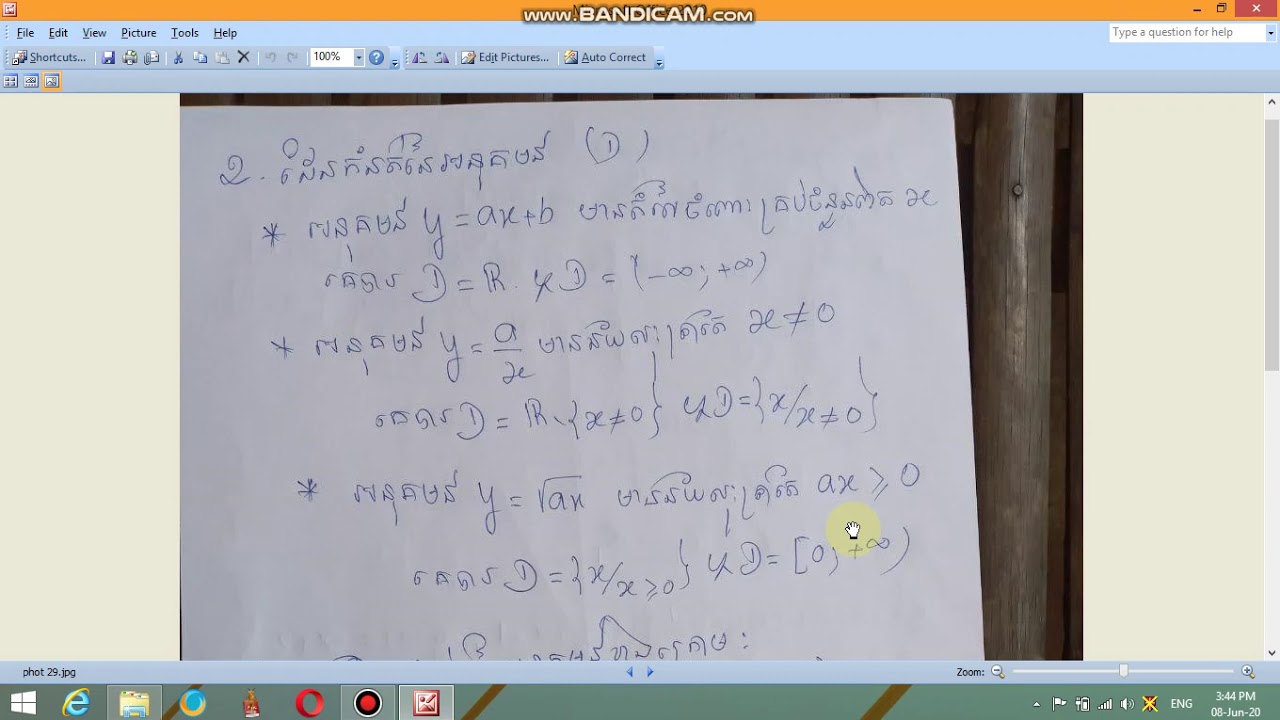 www.BANDICAM.com
File Edit View Picture Tools Help
Type a question for help
Shortcuts... 100% Edit Pictures... Auto Correct
2. ដែនកំនត់នៃអនុគមន៍ (D)
* អនុគមន៍ y = ax+b មានតំលៃចំពោះគ្រប់ចំនួនពិត x
គេបាន D = ℝ ឬ D = (-∞; +∞)
* អនុគមន៍ y = a/x មានន័យលុះត្រាតែ x ≠ 0
គេបាន D = ℝ \ {x ≠ 0} ឬ D = {x/x ≠ 0}
* អនុគមន៍ y = √ax មានន័យលុះត្រាតែ ax ⩾ 0
គេបាន D = {x/x ⩾ 0} ឬ D = [0; +∞)
អនុគមន៍ខាងក្រោម :
phot 29.jpg Zoom:
ENG 3:44 PM
08-Jun-20